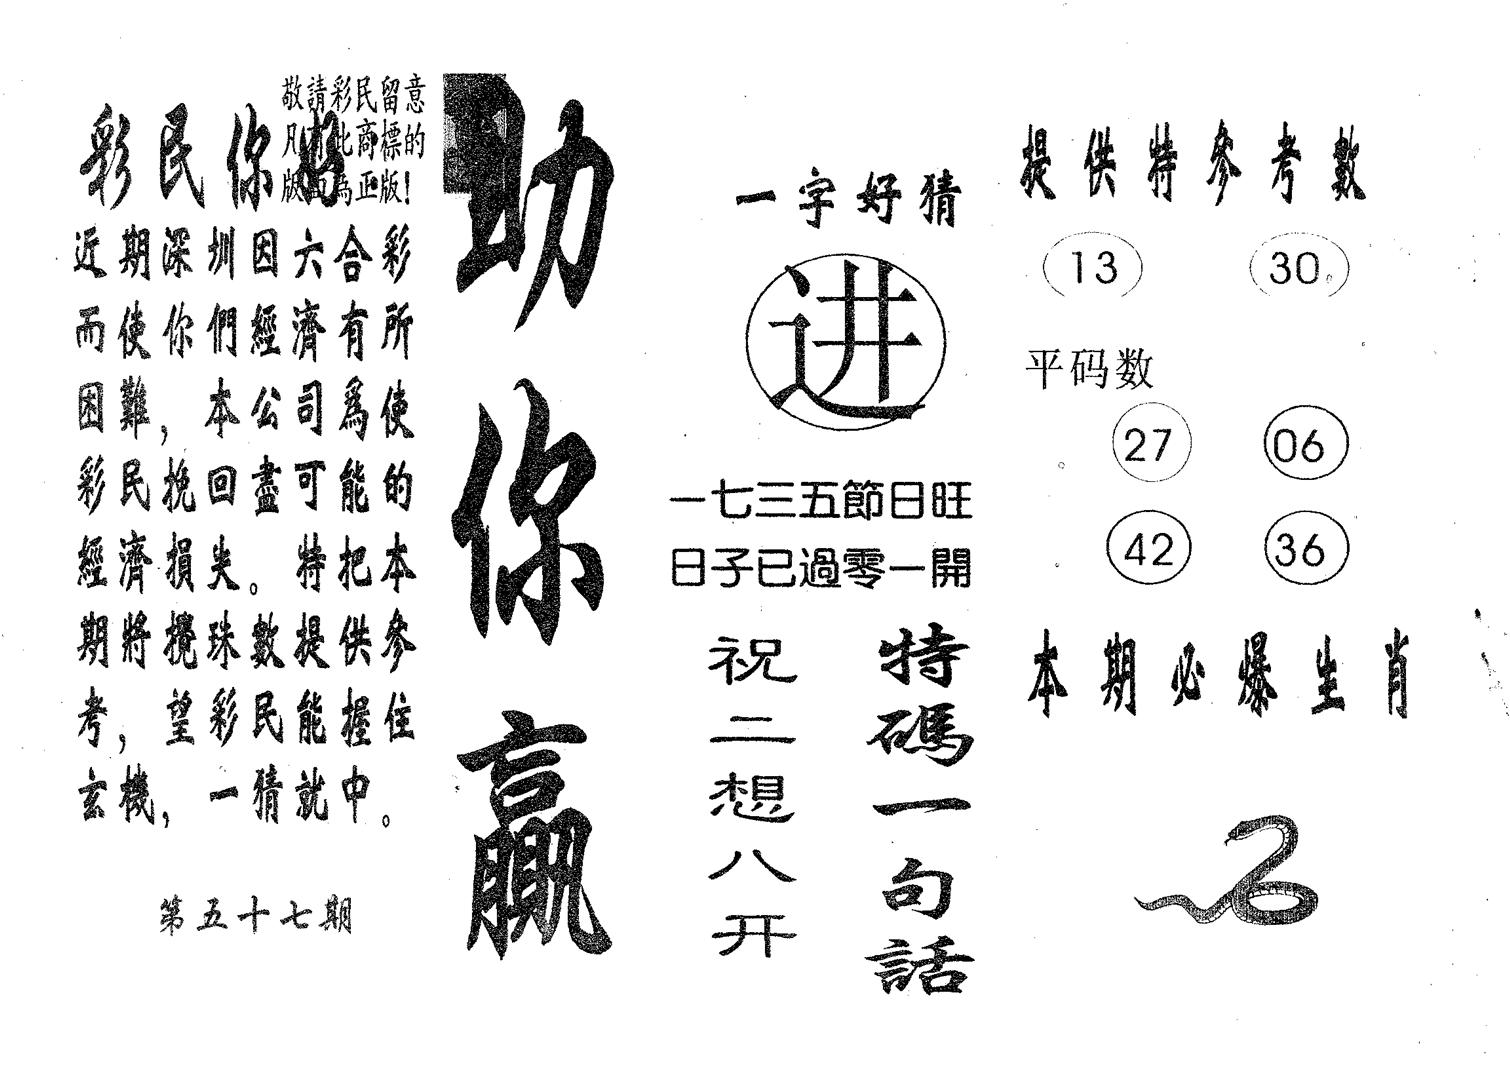 敬請彩民留意
凡有此商標的
版面為正版!
彩民你好
近期深圳因六合彩
而使你們經濟有所
困難，本公司為使
彩民挽回盡可能的
經濟損失。特把本
期將攪珠數提供參
考，望彩民能握住
玄機，一猜就中。
第五十七期
助你贏
一字好猜
进
一七三五節日旺
日子已過零一開
特碼一句話
祝二想八开
提供特參考數
13 30
平码数
27 06
42 36
本期必爆生肖